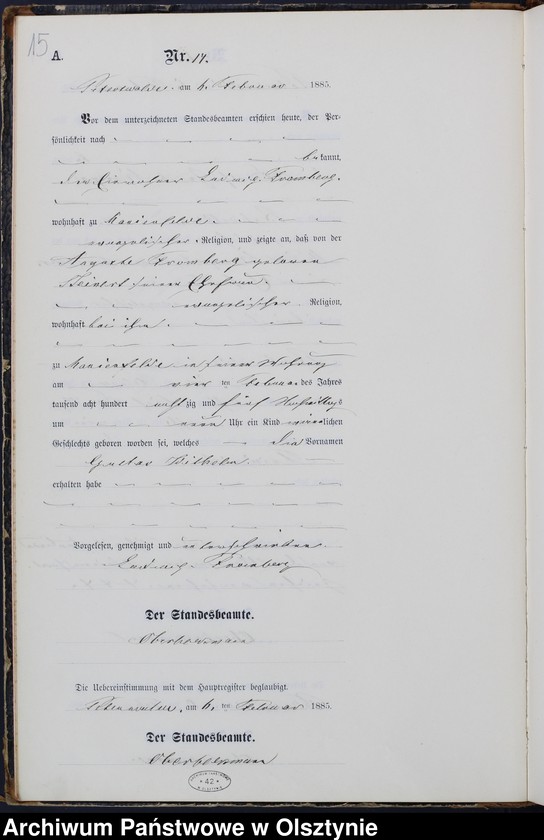 15
A. Nr. 14.
Peterswalde, am 6. Februar 1885.
Vor dem unterzeichneten Standesbeamten erschien heute, der Per-
sönlichkeit nach
bekannt,
der Einwohner Ludwig Fromberg
wohnhaft zu Marienfelde
evangelischer Religion, und zeigte an, daß von der
Auguste Fromberg geborene
seiner Ehefrau
evangelischer Religion,
wohnhaft bei ihm
zu Marienfelde in seiner Wohnung
am vier ten Februar des Jahres
tausend acht hundert achtzig und fünf Nachmittags
um neun Uhr ein Kind männlichen
Geschlechts geboren worden sei, welches die Vornamen
Gustav Wilhelm
erhalten habe
Vorgelesen, genehmigt und unterschrieben
Ludwig Fromberg
Der Standesbeamte.
Die Uebereinstimmung mit dem Hauptregister beglaubigt.
Peterswalde, am 6. ten Februar 1885.
Der Standesbeamte.
42
Archiwum Państwowe w Olsztynie